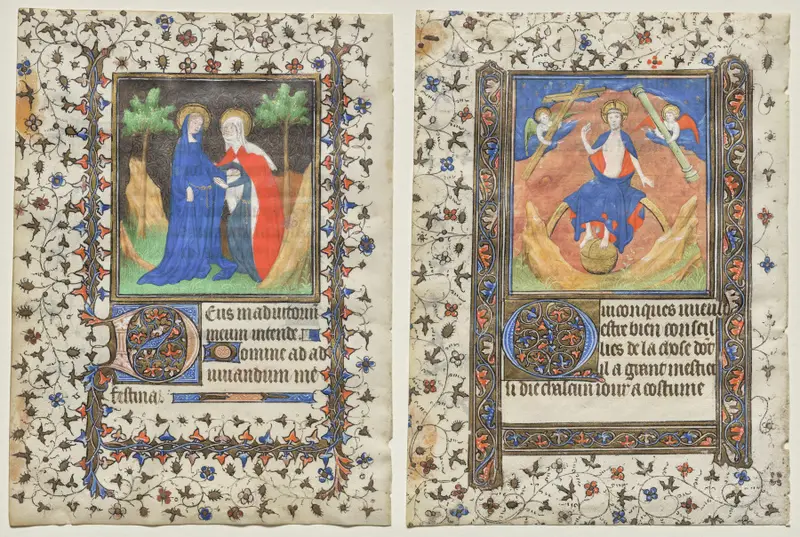 DEus in adiutorium
meum intende
Domine ad ad
iuuandum me
festina.
Quiconques uueult
estre bien conseil
lies de la chose dōt
il a grant mestier
si die chascun iour a costume